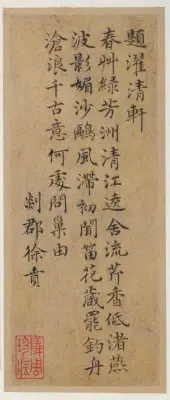 題濯清軒
春艸綠芳洲清江遶舍流芹香低渚燕
波影媚沙鷗風滯初聞笛花蔵罷釣舟
滄浪千古意何處問巢由
剡郡徐賁